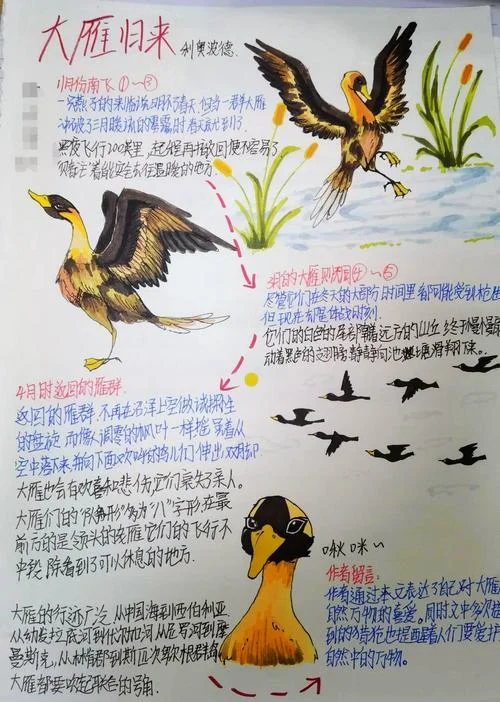 大雁归来 利奥波德.
11月份南飞①~③
一只燕子的来临说明不了春天,但当一群大雁
冲破了三月暖流的雾霭时,春天就来到了.
黑夜飞行200英里,起程再撤回便不容易了
着能安全去往温暖的地方.
3月的大雁则决回④~⑤
尽管它们在冬天的大部分时间里都可能受到枪
但现在却是休战时刻.
它们的白色的尾部朝着远方的山丘,终于慢慢扇
动着黑色的翅膀,静静向池塘滑翔下来.
4月时返回的雁群
返回的雁群,不再在沼泽上空做试探性
的盘旋,而像凋零的枫叶一样摇晃着从
空中落下来,并向下面欢呼的鸟儿们伸出双脚.
大雁也会有欢喜和悲伤,它们丧失了亲人.
大雁们的"队形"为"八"字形,在最
前方的是领头的雁,它们的飞行不
中段,除看到了可以休息的地方.
啾咪~
大雁的行迹广泛,从中国海到西伯利亚,
从幼发拉底河到伏尔加河,从尼罗河到摩
曼斯克,从林肯郡到斯匹次卑尔根群岛.
大雁都要吹起联合的号角.
作者留言:
作者通过本文表达了自己对大雁
自然万物的喜爱。同时文中多次提
到的猎枪也提醒着人们要爱护
自然中的万物。